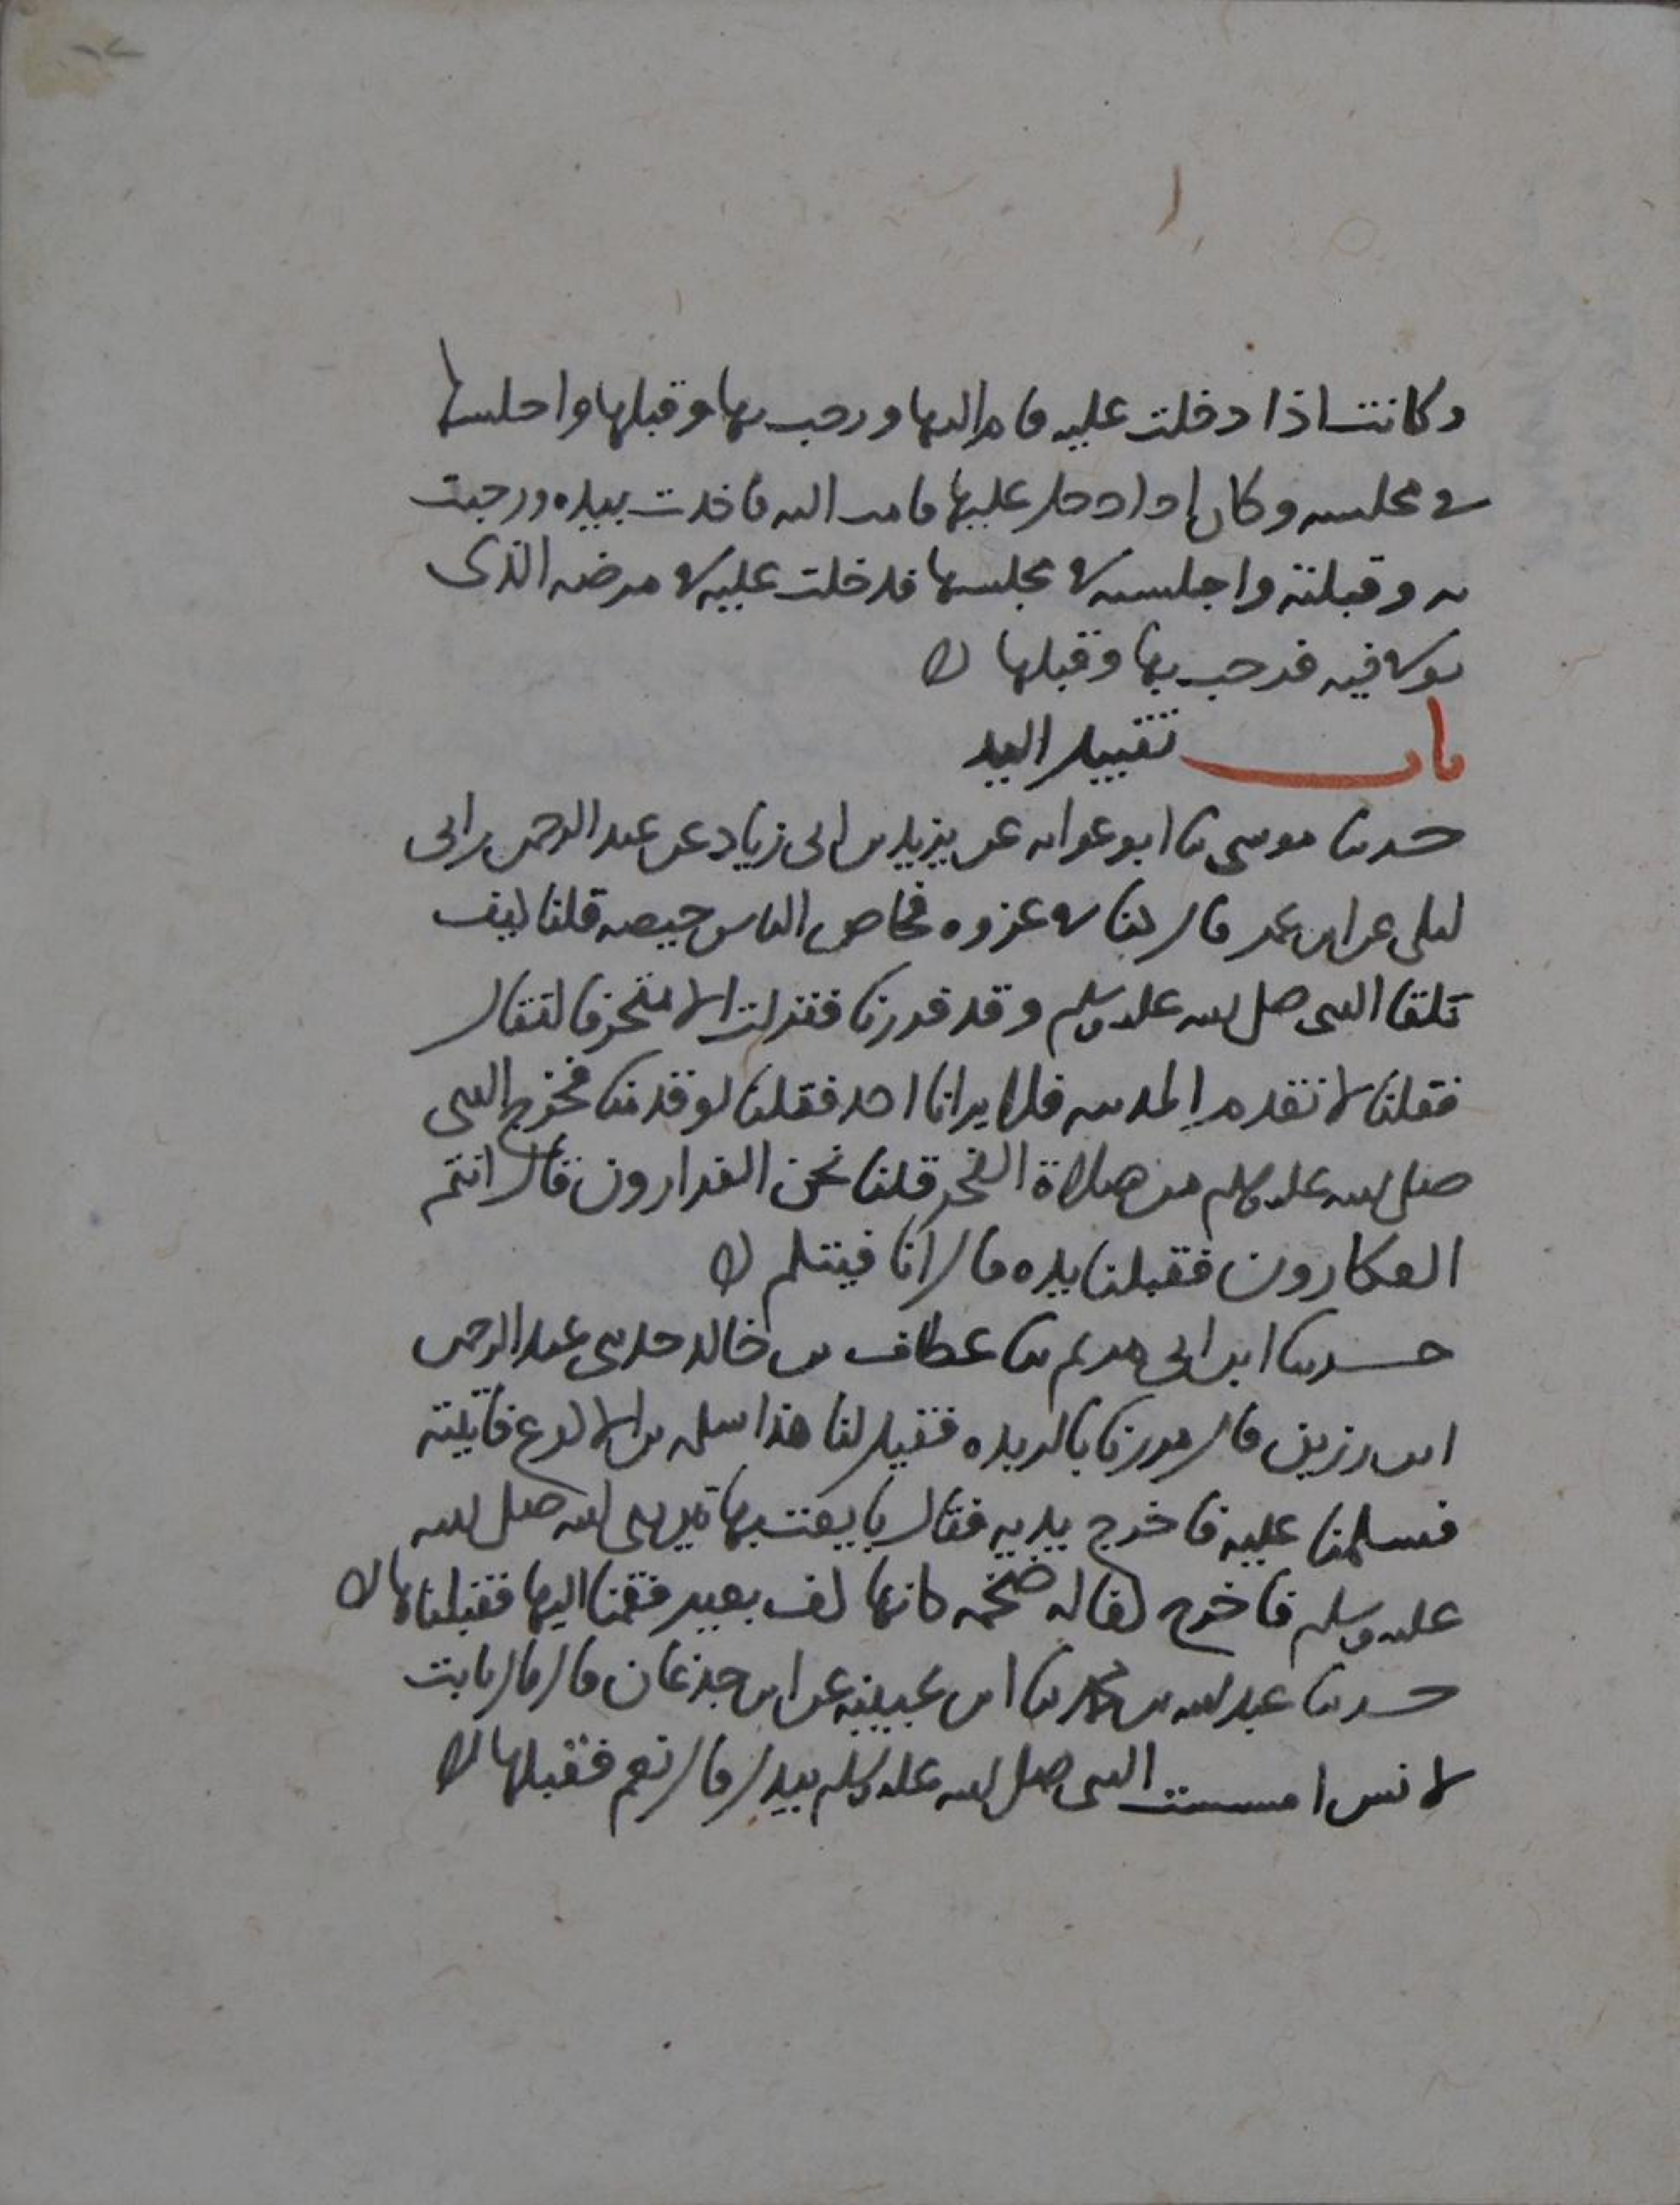 وكانت اذا دخلت عليه قام اليها ورحب بها وقبلها واجلسها
في مجلسه وكان اذا دخل عليها قامت اليه فاخذت بيده ورحبت
به وقبلته واجلسته في مجلسها فدخلت عليه في مرضه الذى
توفي فيه فرحب بها وقبلها
باب تقبيل اليد
حدثنا موسى نا ابو عوانه عن يزيد بن ابى زياد عن عبد الرحمن بن ابى
ليلى عن ابن عمر قال كنا في غزوه فحاص الناس حيصه قلنا كيف
نلقا النبى صلى الله عليه وسلم وقد فررنا فنزلت الا متحرفا لقتال
فقلنا لا نقدم المدينه فلا يرانا احد فقلنا لو قدمنا فخرج النبى
صلى الله عليه وسلم من صلاة الفجر قلنا نحن الفرارون قال انتم
العكارون فقبلنا يده قال انا فيتكم
حدثنا ابن ابى مريم نا عطاف بن خالد حدثنى عبد الرحمن
ابن رزين قال مررنا بالربذه فقيل لنا هذا سلمه بن الاكوع فاتيته
فسلمنا عليه فاخرج يديه فقال بايعت بهاتين نبى الله صلى الله
عليه وسلم فاخرج كفا له ضخمه كانها كف بعير فقمنا اليها فقبلناها
حدثنا عبد الله بن محمد نا ابن عيينه عن ابن جدعان قال قال ثابت
لانس امسست النبى صلى الله عليه وسلم بيدك قال نعم فقبلها